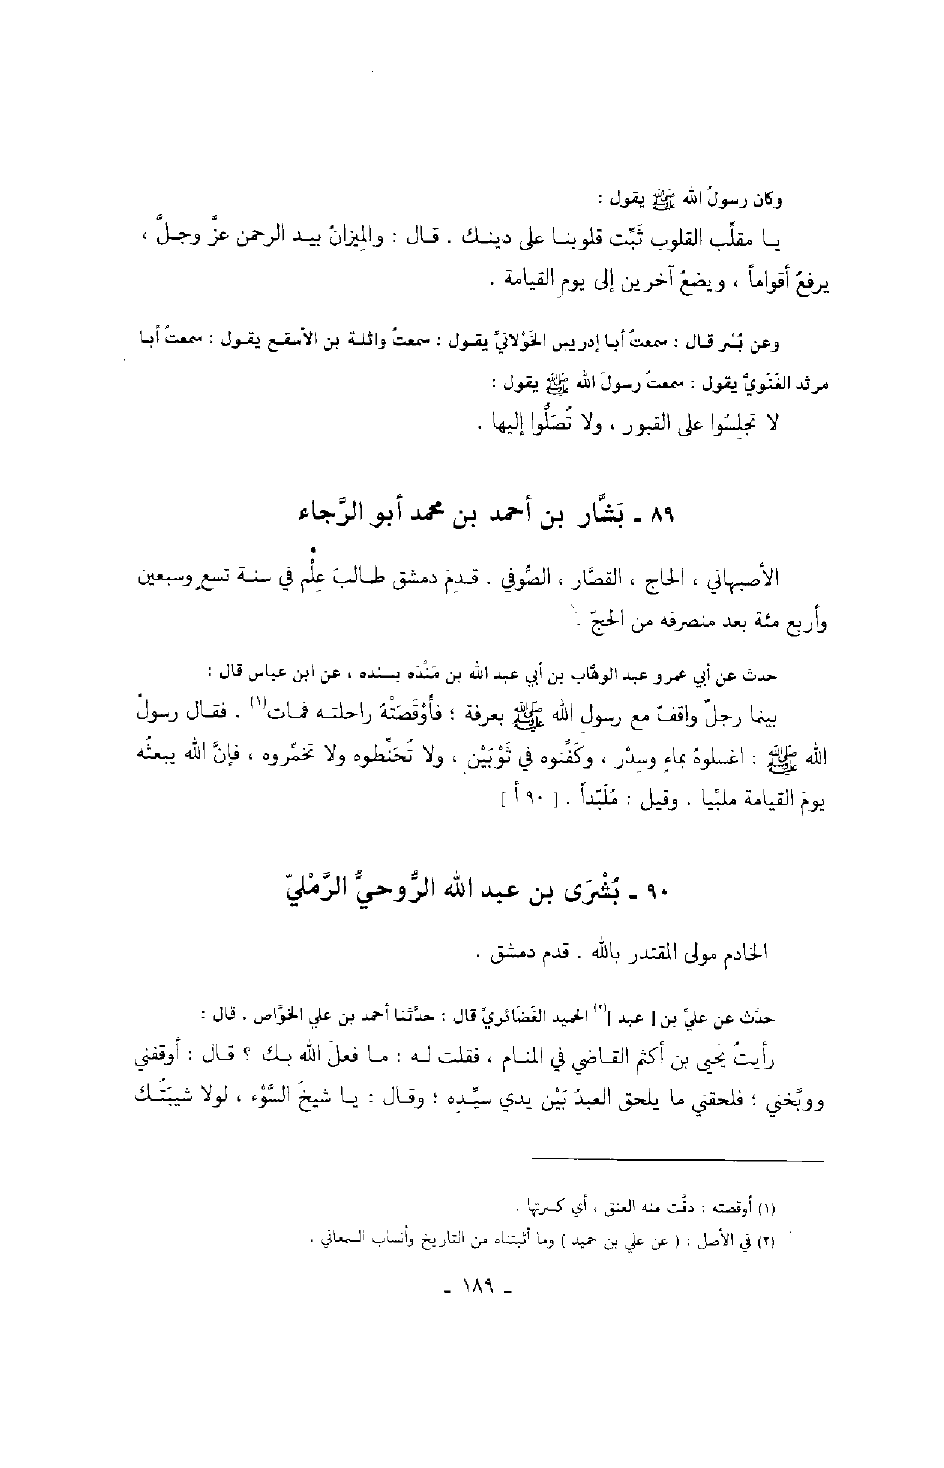 وكان رسولُ الله ﷺ يقول :
يـا مقلِّب القلوب ثبِّت قلوبنـا على دينـك . قـال : والميزانُ بيـد الرحمن عزَّ وجـلَّ ،
يرفعُ أقواماً ، ويضعُ آخرين إلى يوم القيامة .
وعن بُسْر قـال : سمعتُ أبـا إدريس الخَوْلانيَّ يقـول : سمعتُ واثلـة بن الأسقـع يقـول : سمعتُ أبـا
مرثد الغَنَويَّ يقول : سمعتُ رسولَ الله ﷺ يقول :
لا تجلِسُوا على القبور ، ولا تُصَلُّوا إليها .
٨٩ ـ بَشَّار بن أحمد بن محمد أبو الرَّجاء
الأصبهاني ، الحاج ، القصَّار ، الصُّوفي . قـدِمَ دمشق طـالبَ عِلْم في سنـة تسعٍ وسبعين
وأربع مئة بعد منصرفه من الحجّ .
حدث عن أبي عمرو عبد الوهّاب بن أبي عبد الله بن مَنْدَه بسنده ، عن ابن عباس قال :
بينما رجلٌ واقفٌ مع رسول الله ﷺ بعرفة ؛ فأَوْقَصَتْهُ راحلتـه فمات(١) . فقـال رسولُ
الله ﷺ : اغسلوهُ بماءٍ وسِدْر ، وكَفِّنوه في ثَوْبَيْن ، ولا تُحَنِّطوه ولا تخمِّروه ، فإنَّ الله يبعثُه
يومَ القيامة ملبِّيا . وقيل : مُلَبِّداً . [ ٩٠ أ ]
٩٠ ـ بُشْرَى بن عبد الله الرُّوحيُّ الرَّمْليّ
الخادم مولى المقتدر بالله . قدم دمشق .
حدَّث عن عليّ بن [ عبد ](٢) الحميد الغَضَائريّ قال : حدَّثنا أحمد بن علي الخوَّاص . قال :
رأيتُ يحيى بن أكثم القاضي في المنـام ، فقلت لـه : مـا فعلَ الله بـك ؟ قـال : أوقفني
ووبَّخني ؛ فلحقني ما يلحق العبدُ بَيْن يدي سيِّده ؛ وقـال : يـا شيخَ السَّوْء ، لولا شيبَتُـك
(١) أوقصته : دقَّت منه العنق ، أي كسرتها .
(٢) في الأصل : ( عن علي بن حميد ) وما أثبتناه من التاريخ وأنساب السمعاني .
ـ ١٨٩ ـ